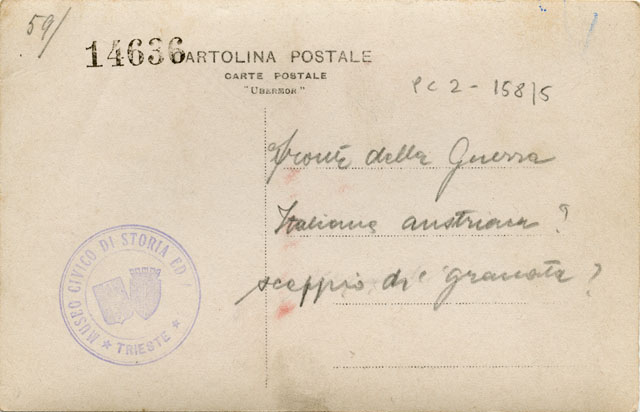 59/
14636
CARTOLINA POSTALE
CARTE POSTALE
"UBERMOR"
PC 2 - 158/5
Fronte della Guerra
Italiana austriaca?
scoppio di granata?
MUSEO CIVICO DI STORIA ED
★ TRIESTE ★